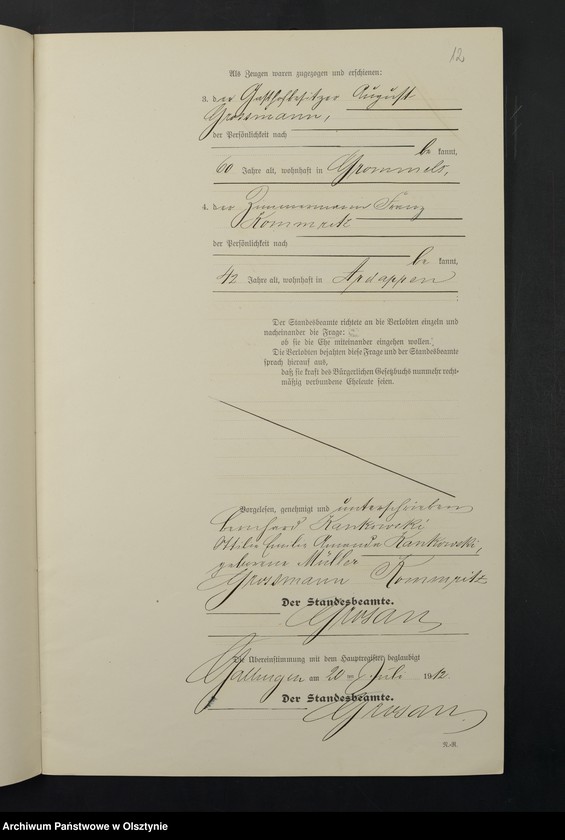 12
Als Zeugen waren zugezogen und erschienen:
3. der Gasthofbesitzer August
Grossmann,
der Persönlichkeit nach
be kannt,
60 Jahre alt, wohnhaft in Grommels,
4. der Zimmermann Franz
Kommritz
der Persönlichkeit nach
be kannt,
42 Jahre alt, wohnhaft in Apdappen
Der Standesbeamte richtete an die Verlobten einzeln und
nacheinander die Frage:
ob sie die Ehe miteinander eingehen wollen.
Die Verlobten bejahten diese Frage und der Standesbeamte
sprach hierauf aus,
daß sie kraft des Bürgerlichen Gesetzbuchs nunmehr recht-
mäßig verbundene Eheleute seien.
Vorgelesen, genehmigt und unterschrieben
Bernhard Kankowski
Ottilie Emilie Amanda Kankowski,
geborene Müller
Grossmann Kommritz
Der Standesbeamte.
Grosan
Die Übereinstimmung mit dem Hauptregister beglaubigt
Gallingen am 20 ten Juli 1912.
Der Standesbeamte.
Grosan
R.-R.
Archiwum Państwowe w Olsztynie